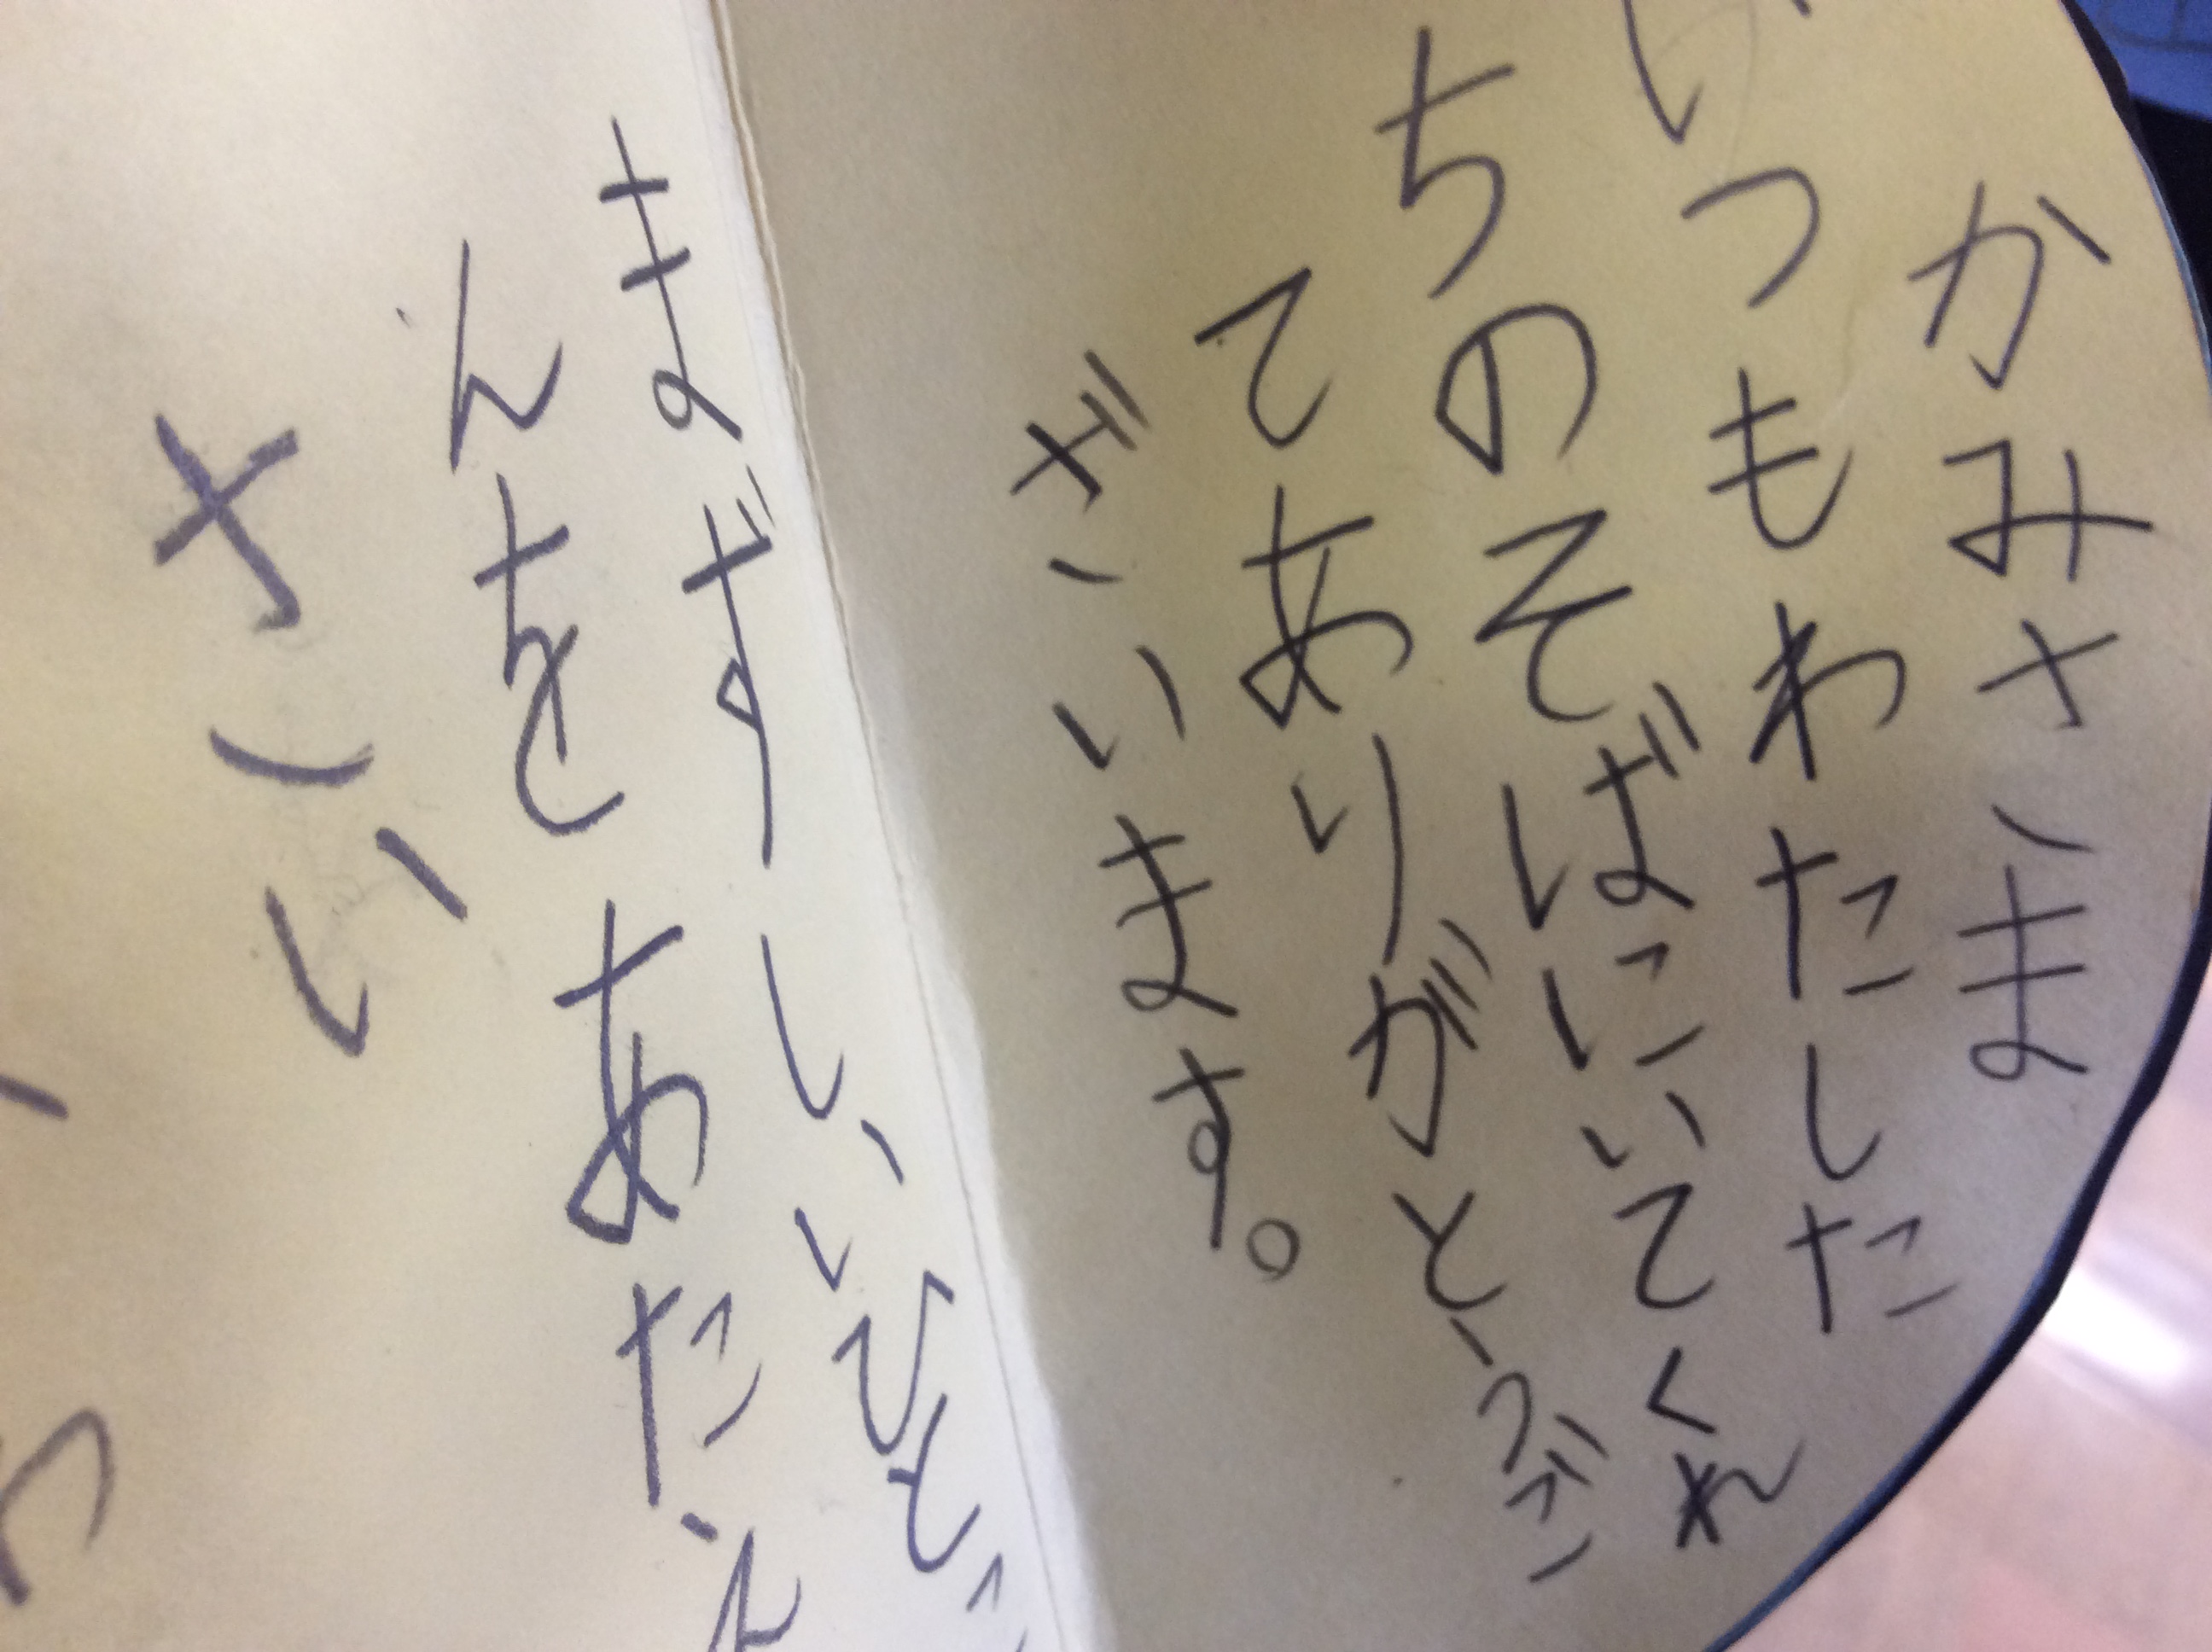 かみさま
いつもわたした
ちのそばにいてくれ
てありがとうご
ざいます。
まずしいひとに
んをあたえ
さい